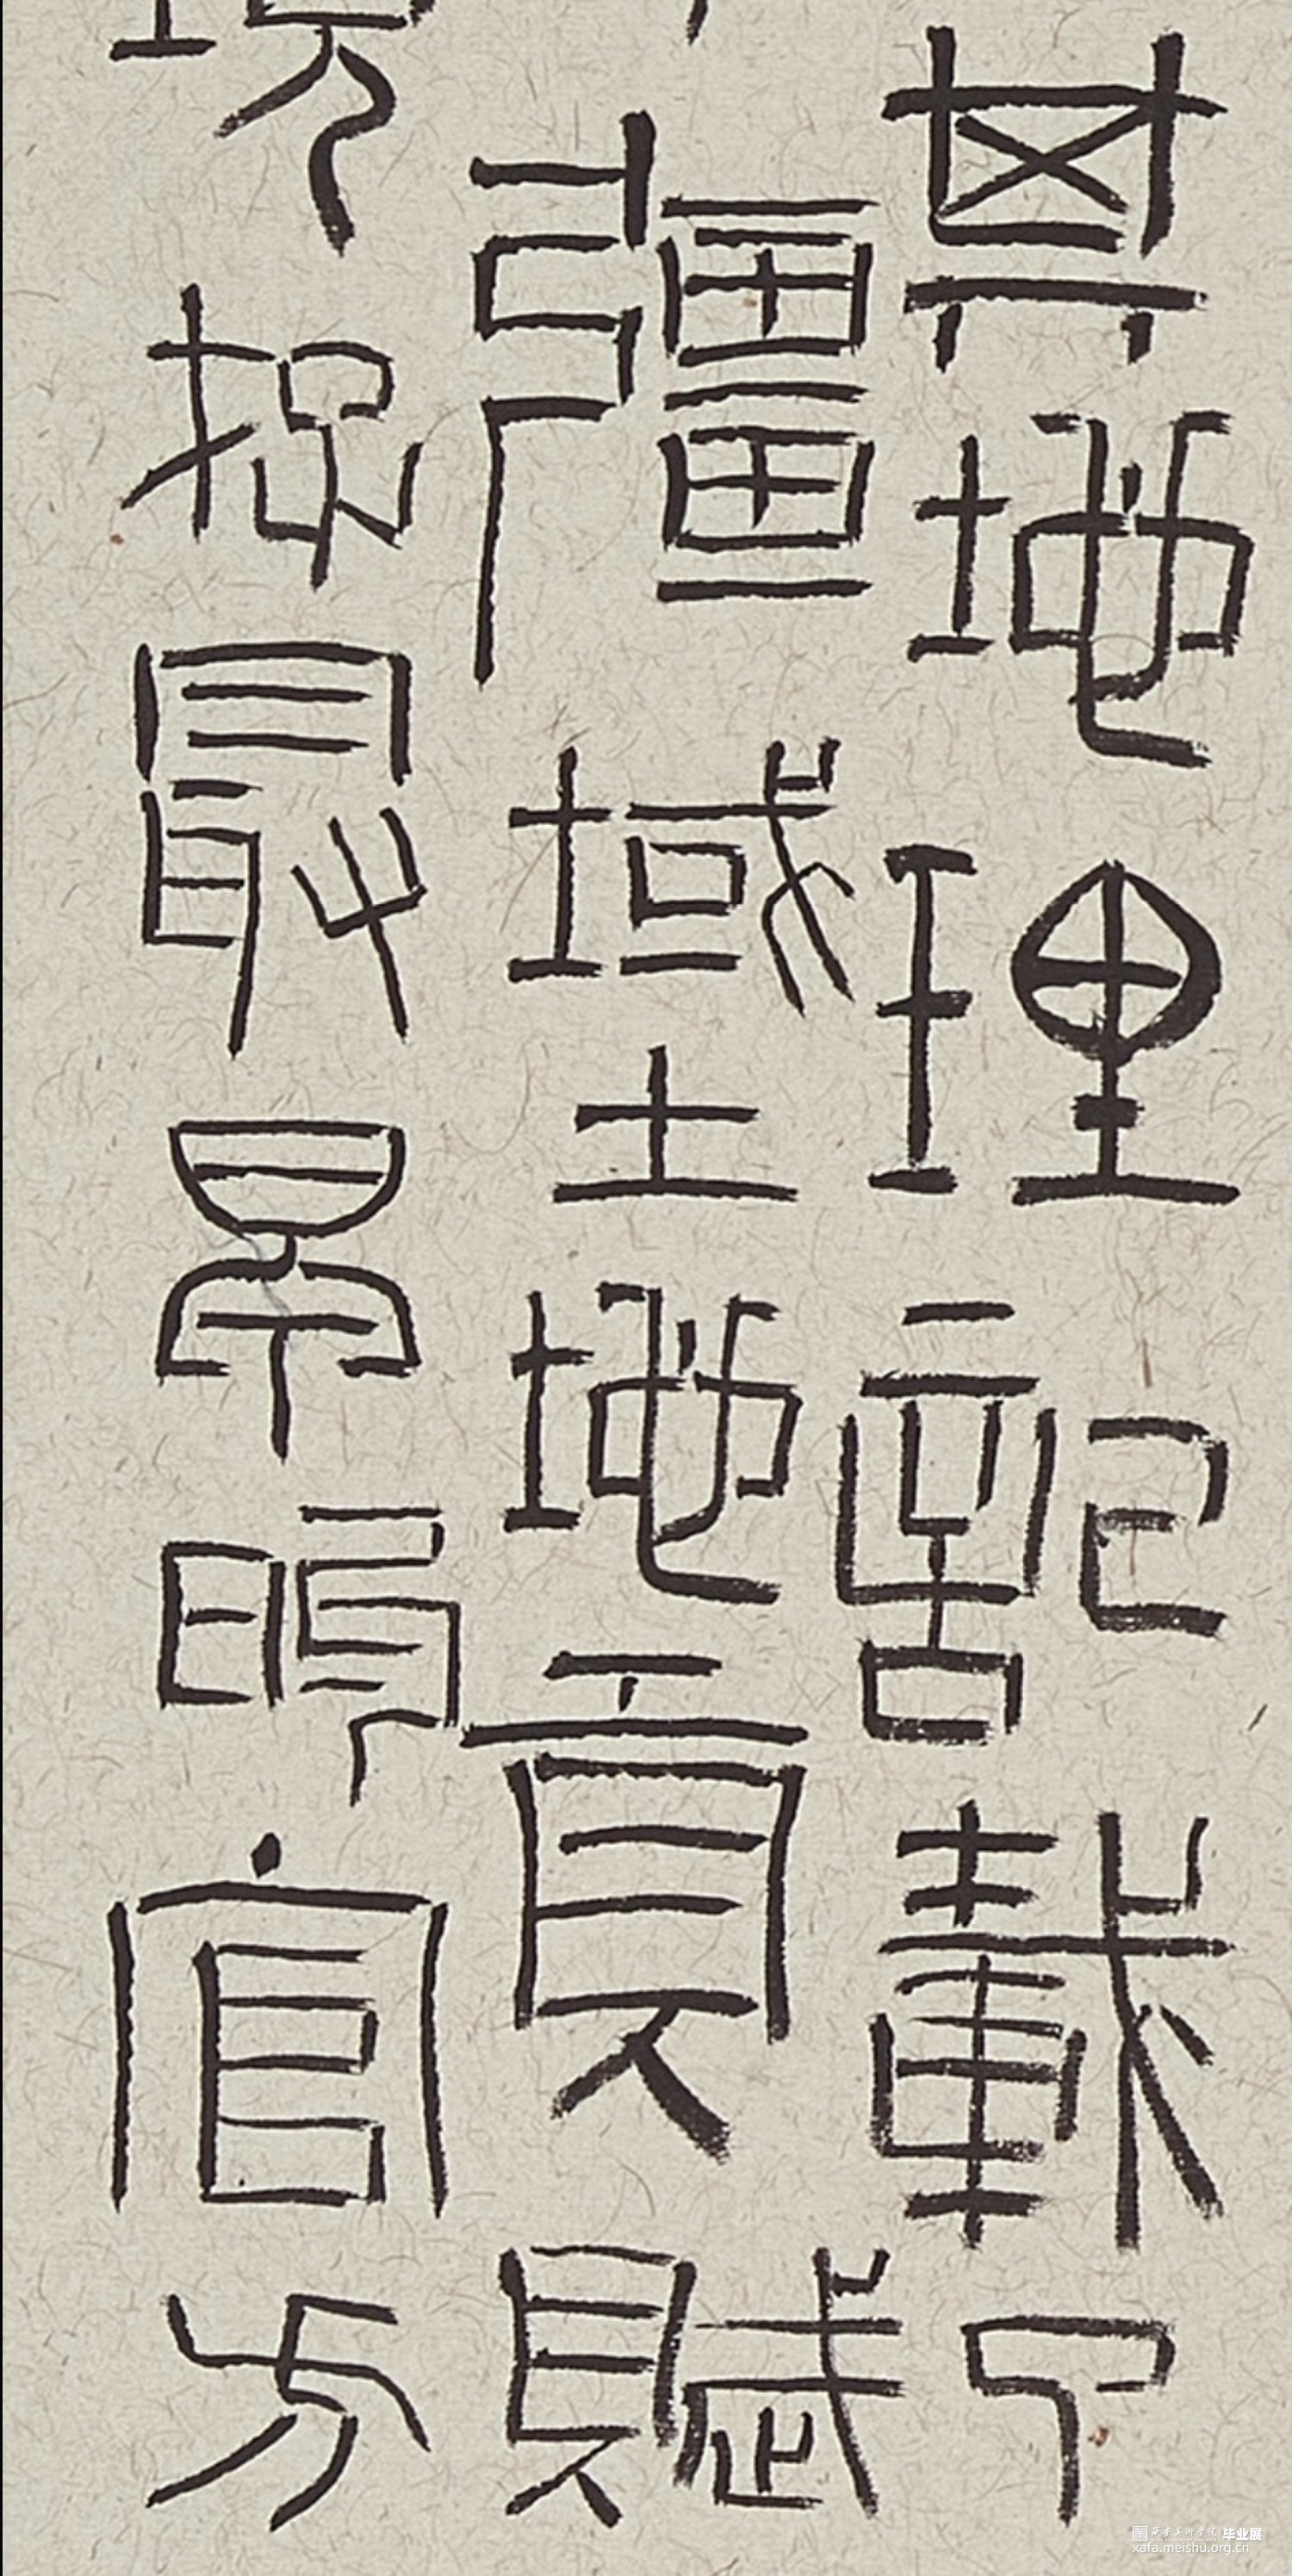 其地理記載了
疆域土地貢賦
最早的官方
西安美術學院 毕业展
xafa.meishu.org.cn